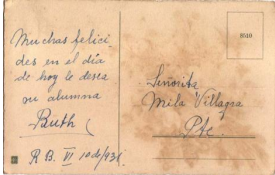 Muchas felici
des en el día
de hoy le desea
su alumna
Ruth
R.B. VI
8510
Señorita
Mila Villagra
Pte.